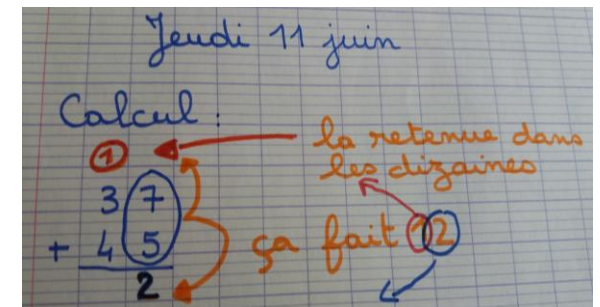 Jeudi 11 juin
Calcul :
1 la retenue dans
les dizaines
37
+ 45 ça fait 12
2